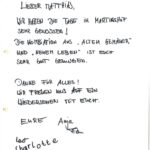 LIEBER MATTHIAS,
WIR HABEN DIE TAGE IN
SEHR GENOSSEN!
DIE KOMBINATION AUS „ALTEM GEMÄUER“
UND „NEUEM LEBEN“ IST EUCH
SEHR GUT GELUNGEN.
DANKE FÜR ALLES!
WIR FREUEN UNS AUF EIN
WIEDERSEHEN MIT EUCH.
EURE Anja
und
Charlotte